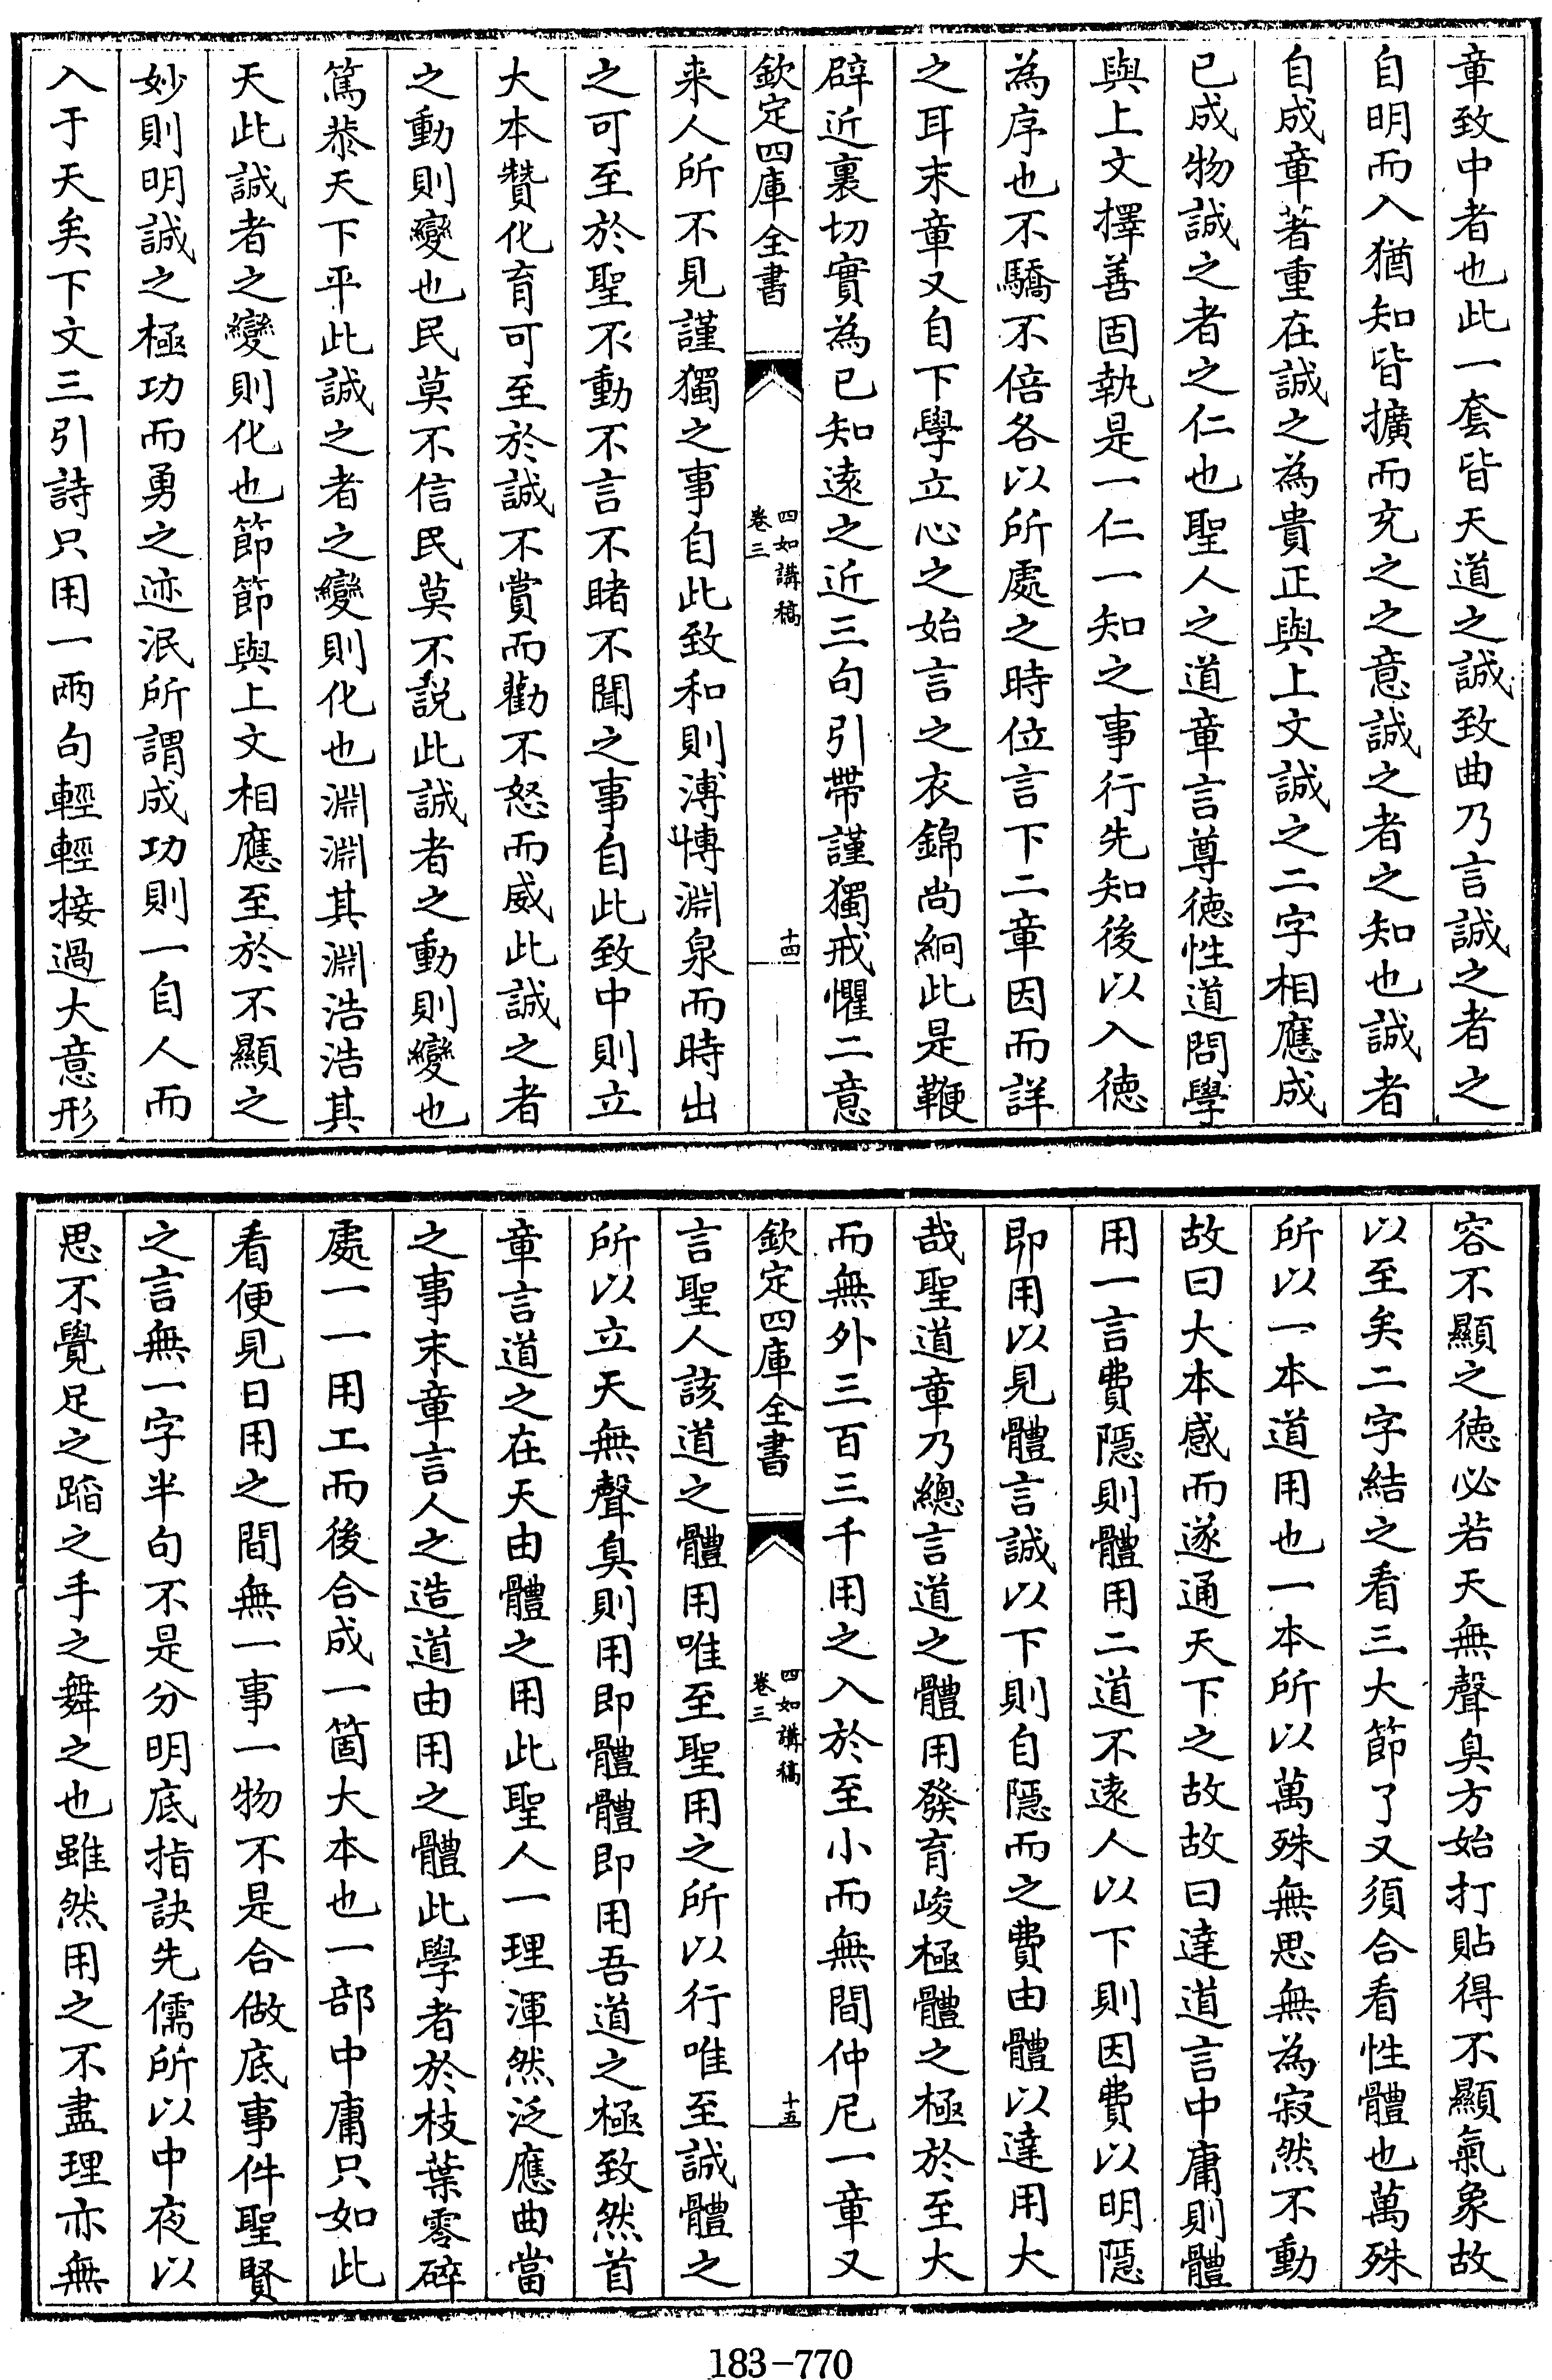 章致中者也此一套皆天道之誠致曲乃言誠之者之
自明而入猶知皆擴而充之之意誠之者之知也誠者
自成章著重在誠之為貴正與上文誠之二字相應成
已成物誠之者之仁也聖人之道章言尊徳性道問學
與上文擇善固執是一仁一知之事行先知後以入徳
為序也不驕不倍各以所處之時位言下二章因而詳
之耳末章又自下學立心之始言之衣錦尚絅此是鞭
辟近裏切實為已知遠之近三句引帶謹獨戒懼二意
欽定四庫全書
四如講稿
卷三
十四
来人所不見謹獨之事自此致和則溥博淵泉而時出
之可至於聖不動不言不睹不聞之事自此致中則立
大本贊化育可至於誠不賞而勸不怒而威此誠之者
之動則變也民莫不信民莫不說此誠者之動則變也
篤恭天下平此誠之者之變則化也淵淵其淵浩浩其
天此誠者之變則化也節節與上文相應至於不顯之
妙則明誠之極功而勇之迹泯所謂成功則一自人而
入于天矣下文三引詩只用一兩句輕輕接過大意形
容不顯之徳必若天無聲臭方始打貼得不顯氣象故
以至矣二字結之看三大節了又須合看性體也萬殊
所以一本道用也一本所以萬殊無思無為寂然不動
故曰大本感而遂通天下之故故曰達道言中庸則體
用一言費隱則體用二道不遠人以下則因費以明隱
即用以見體言誠以下則自隱而之費由體以達用大
哉聖道章乃總言道之體用發育峻極體之極於至大
而無外三百三千用之入於至小而無間仲尼一章又
欽定四庫全書
四如講稿
卷三
十五
言聖人該道之體用唯至聖用之所以行唯至誠體之
所以立天無聲臭則用即體體即用吾道之極致然首
章言道之在天由體之用此聖人一理渾然泛應曲當
之事末章言人之造道由用之體此學者於枝葉零碎
處一一用工而後合成一箇大本也一部中庸只如此
看便見日用之間無一事一物不是合做底事件聖賢
之言無一字半句不是分明底指訣先儒所以中夜以
思不覺足之蹈之手之舞之也雖然用之不盡理亦無
183-770